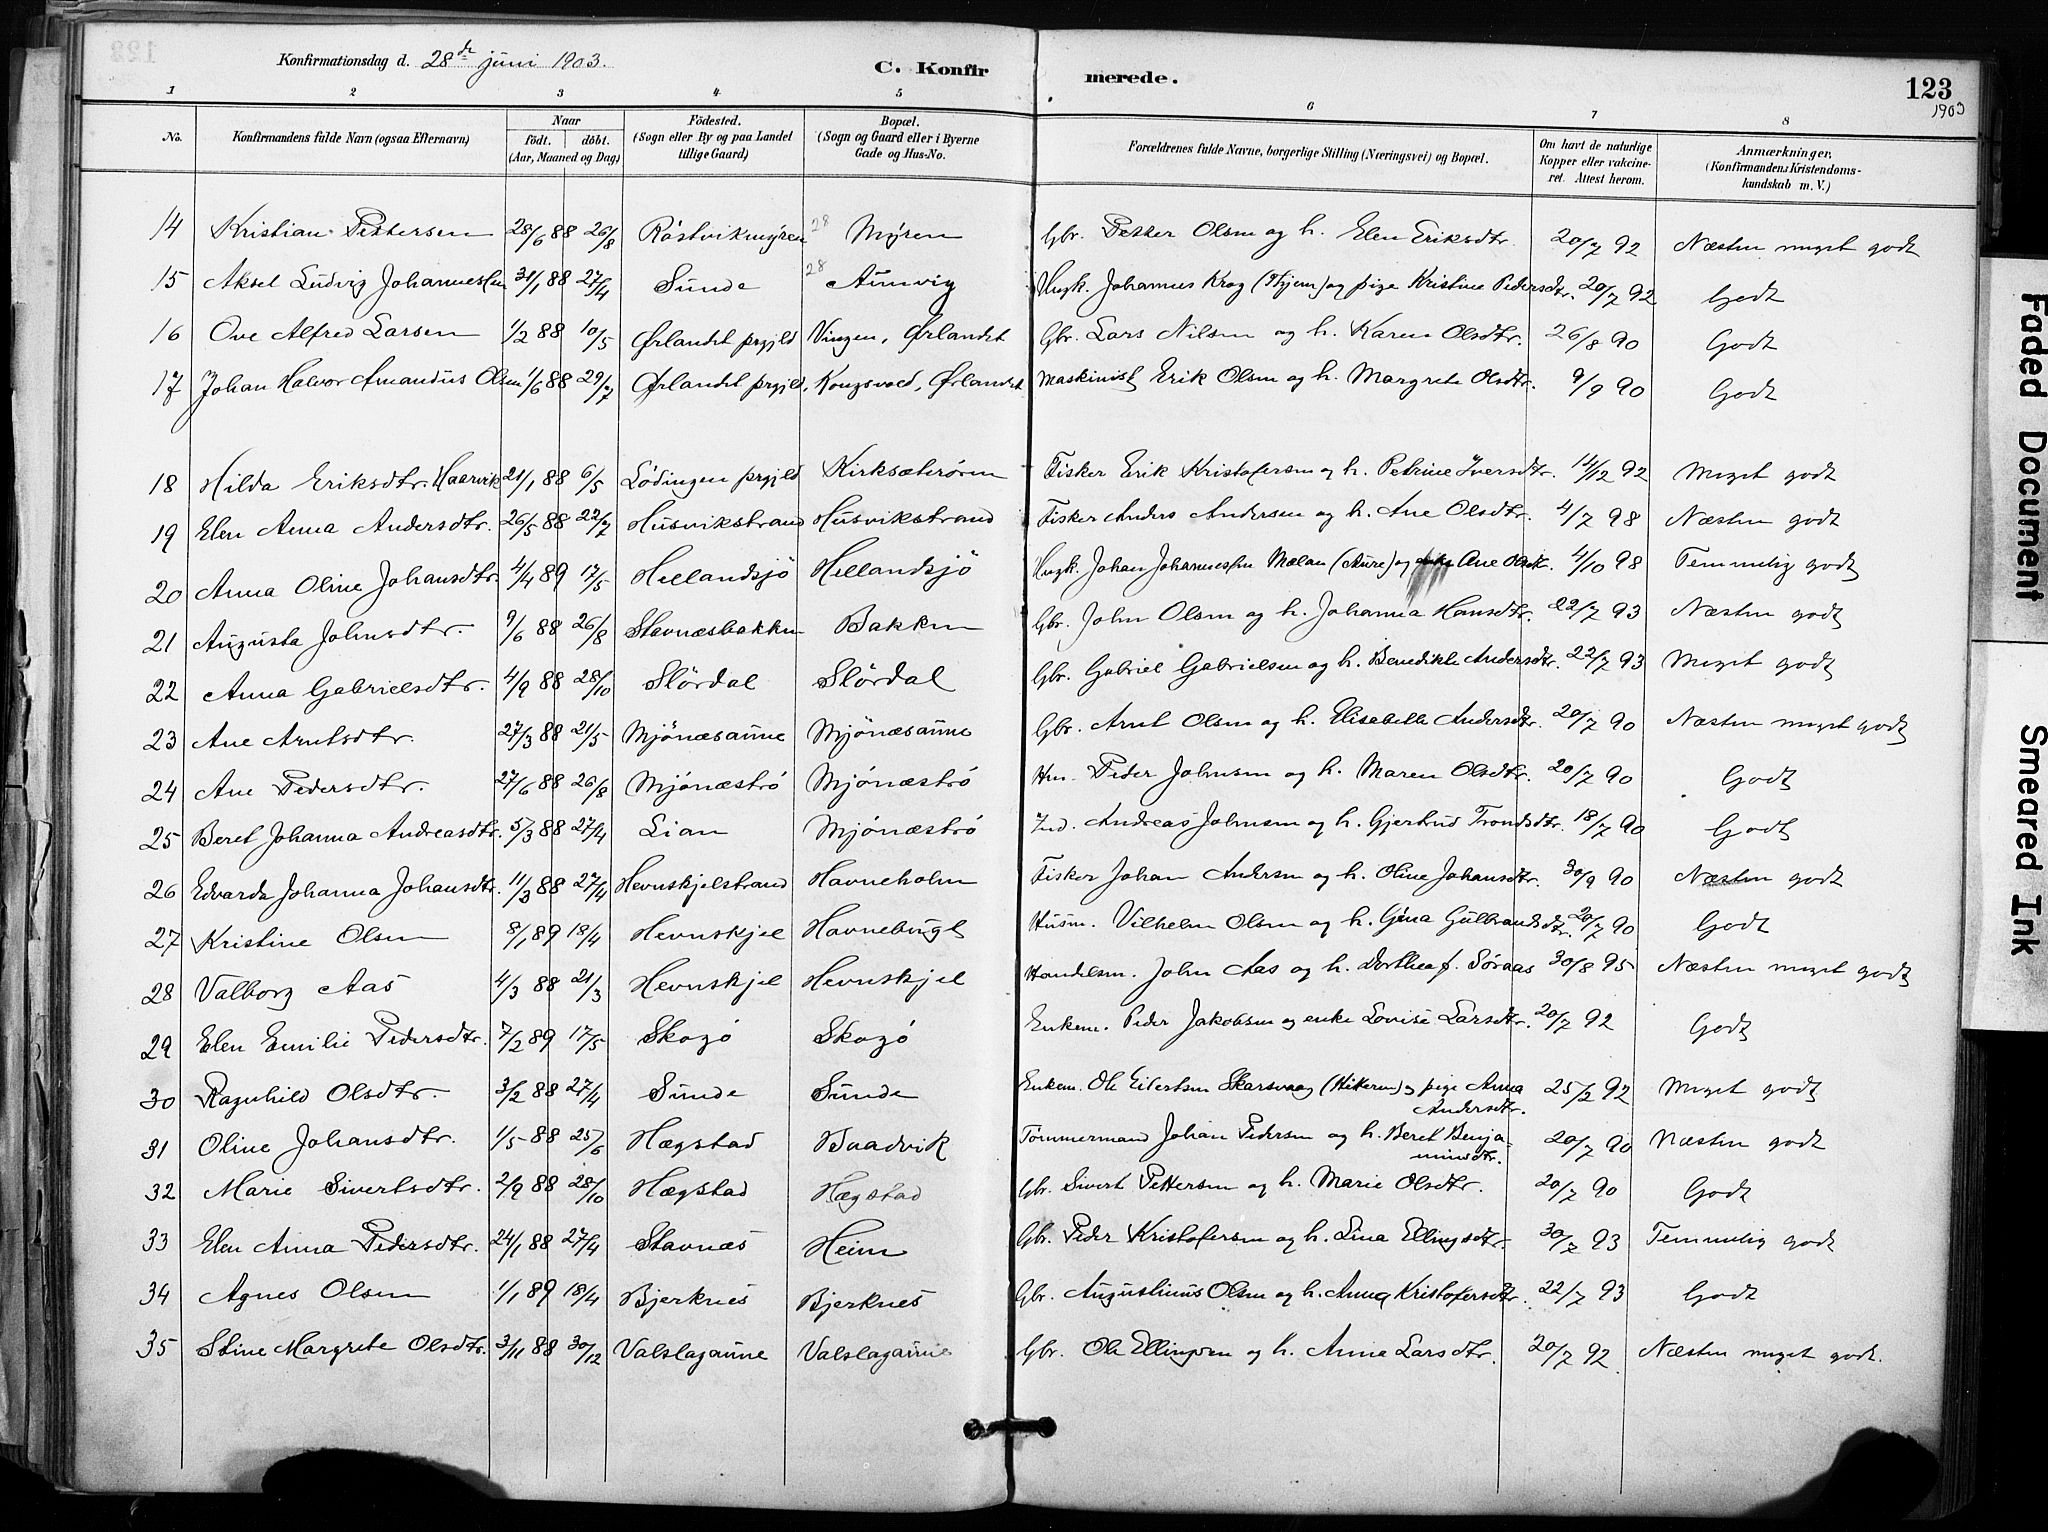 Konfirmationsdag d. 28de juni 1903.
C. Konfirmerede.
123
1903
1 2 3 4 5 6 7 8
No. Konfirmandens fulde Navn (ogsaa Efternavn) Naar født. døbt. (Aar, Maaned og Dag) Födested. (Sogn eller By og paa Landet tillige Gaard) Bopæl. (Sogn og Gaard eller i Byerne Gade og Hus-No. Forældrenes fulde Navne, borgerlige Stilling (Næringsvei) og Bopæl. Om havt de naturlige Kopper eller vakcineret. Attest herom. Anmærkninger. (Konfirmandens Kristendomskundskab m. V.)
14 Kristian Pettersen 28/6 88 26/8 Röstvikmyren 28 Myren Gbr. Petter Olsen og h. Elen Eriksdtr. 20/7 92 Næsten meget godt
15 Aksel Ludvig Johannessen 31/1 88 27/4 Sunde 28 Aunvig Ungk. Johannes Krog (Hjem) og pige Kristine Pedersdtr. 20/7 92 Godt
16 Ove Alfred Larsen 1/2 88 10/5 Ørlandet prgjld Vingen, Ørlandet Gbr. Lars Nilsen og h. Karen Olsdtr. 26/8 90 Godt
17 Johan Halvor Amandus Olsen 1/6 88 29/7 Ørlandet prgjld, Kongsvold, Ørlandet Maskinist Erik Olsen og h. Margrete Olsdtr. 9/9 90 Godt
18 Hilda Eriksdtr. Haarvik 21/1 88 6/5 Lødingen prgjld Kirksæterören Fisker Erik Kristofersen og h. Petrine Iversdtr. 14/12 92 Meget godt
19 Elen Anna Andersdtr. 26/5 88 22/7 Husvikstrand Husvikstrand Fisker Anders Andersen og h. Ane Olsdtr. 4/7 98 Næsten godt
20 Anna Oline Johansdtr. 4/4 89 17/5 Hellandsjö Hellandsjö Ungk. Johan Johannessen Mælan (Aure) og Ane Olsdtr. 4/10 98 Temmelig godt
21 Augusta Johnsdtr. 9/6 88 26/8 Stavnæsbakken Bakken Gbr. John Olsen og h. Johanna Hansdtr. 22/7 93 Næsten godt
22 Anna Gabrielsdtr. 4/9 88 28/10 Slördal Slördal Gbr. Gabriel Gabrielsen og h. Benedikte Andersdtr. 22/7 93 Meget godt
23 Ane Arntsdtr. 27/3 88 21/5 Mjönæsaune Mjönæsaune Gbr. Arnt Olsen og h. Elisabeth Andersdtr. 20/7 90 Næsten meget godt
24 Ane Pedersdtr. 27/6 88 26/8 Mjönæströ Mjönæströ Hm. Peder Johnsen og h. Maren Olsdtr. 20/7 90 Godt
25 Beret Johanna Andreasdtr. 5/3 88 27/4 Lian Mjönæströ Ind. Andreas Johnsen og h. Gjertrud Trondsdtr. 18/7 90 Godt
26 Edvarda Johanna Johansdtr. 11/3 88 27/4 Hevnskjelstrand Havneholm Fisker Johan Andersen og h. Oline Johansdtr. 30/9 90 Næsten godt
27 Kristine Olsen 8/1 89 18/4 Hevnskjel Havneburgt Husm. Vilhelm Olsen og h. Gina Gulbrandsdtr. 20/7 90 Godt
28 Valborg Aas 4/3 88 21/3 Hevnskjel Hevnskjel Handelsm. John Aas og h. Dorthea f. Söraas 30/8 95 Næsten meget godt
29 Elen Emilie Pedersdtr. 7/2 89 17/5 Skogö Skogö Enkem. Peder Jakobsen og enke Lovise Larsdtr. 20/7 92 Godt
30 Ragnhild Olsdtr. 3/2 88 27/4 Sunde Sunde Enkem. Ole Eilertsen Skarsvaag (Hitteren) og pige Anna
Andersdtr. 25/2 92 Meget godt
31 Oline Johansdtr. 1/5 88 25/6 Hægstad Baadvik Tömmermand Johan Pedersen og h. Beret Benja-
minsdtr. 20/7 90 Næsten godt
32 Marie Sivertsdtr. 2/9 88 28/10 Hægstad Hægstad Gbr. Sivert Pettersen og h. Marie Olsdtr. 20/7 90 Godt
33 Elen Anna Pedersdtr. 24/1 88 27/4 Stavnæs Heim Gbr. Peder Kristofersen og h. Lina Ellingsdtr. 30/7 93 Temmelig godt
34 Agnes Olsen 1/1 89 18/4 Bjerknes Bjerknes Gbr. Augustinus Olsen og h. Anna Kristofersdtr. 22/7 93 Godt
35 Stine Margrete Olsdtr. 3/11 88 30/12 Valslagaune Valslagaune Gbr. Ole Ellingsen og h. Anne Larsdtr. 20/7 92 Næsten meget godt.
Faded Document
Smeared Ink